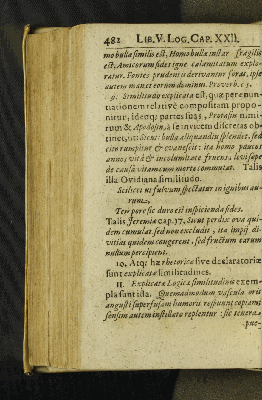 482 LIB. V. LOG. CAP. XXII.
mobulla similis est, Homo bullæ instar fragilis
est, Amicorum fides igne calamitatum explo-
ratur. Fontes prudentis derivantur foras, ipse
autem manet eorum dominus. Proverb. c. 5.
9. Similitudo explicata est, quæ per enun-
tiationem relativè compositam propo-
nitur, ideoq; partes suas, Protasin nimi-
rum & Apodosin, à se invicem discretas ob-
tinet, ut: Sicut bulla aliquandiu splendet, sed
citò rumpitur & evanescit: ita homo paucos
annos, vitâ & incolumitate fruens, levi sæpe
de causâ vitam cum morte commutat. Talis
illa Ovidiana similitudo.
Scilicet ut fulvum spectatur in ignibus au-
rum,
Tempore sic duro est inspicienda fides.
Talis Jeremiæ cap. 17. Sicut perdix ova qui-
dem cumulat, sed non excludit, ita impij di-
vitias quidem congerent, sed fructum earum
nullum percipient.
10. Atq; hæ rhetoricæ sive declaratoriæ
sunt explicatæ similitudines.
11. Explicatæ Logicæ similitudinis exem-
pla sunt ista. Quemadmodum vascula oris
angusti superfusam humoris respuunt copiam,
sensim autem instillato replentur: sic tenera
pue-